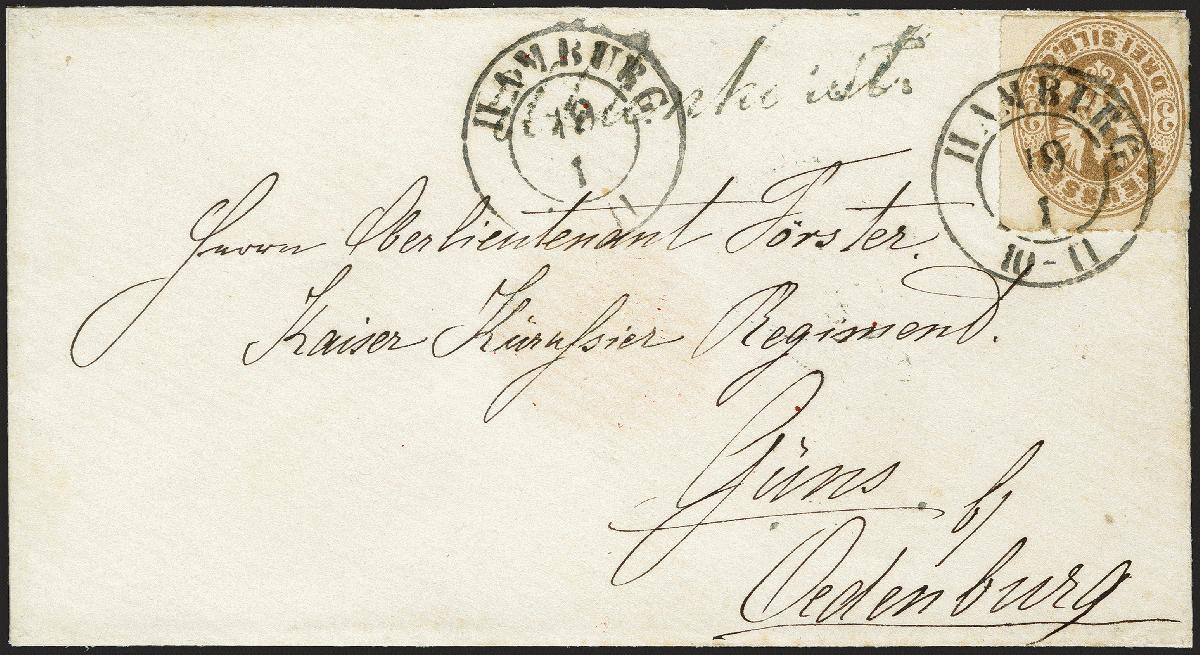 HAMBURG
19
1
11
HAMBURG
19
1
10-11
DREI SILB. GR.
3
PREUSSEN
Herrn Oberlieutenant Förster.
Kaiser Küraſsier Regimend.
Güns. b/
Oedenburg